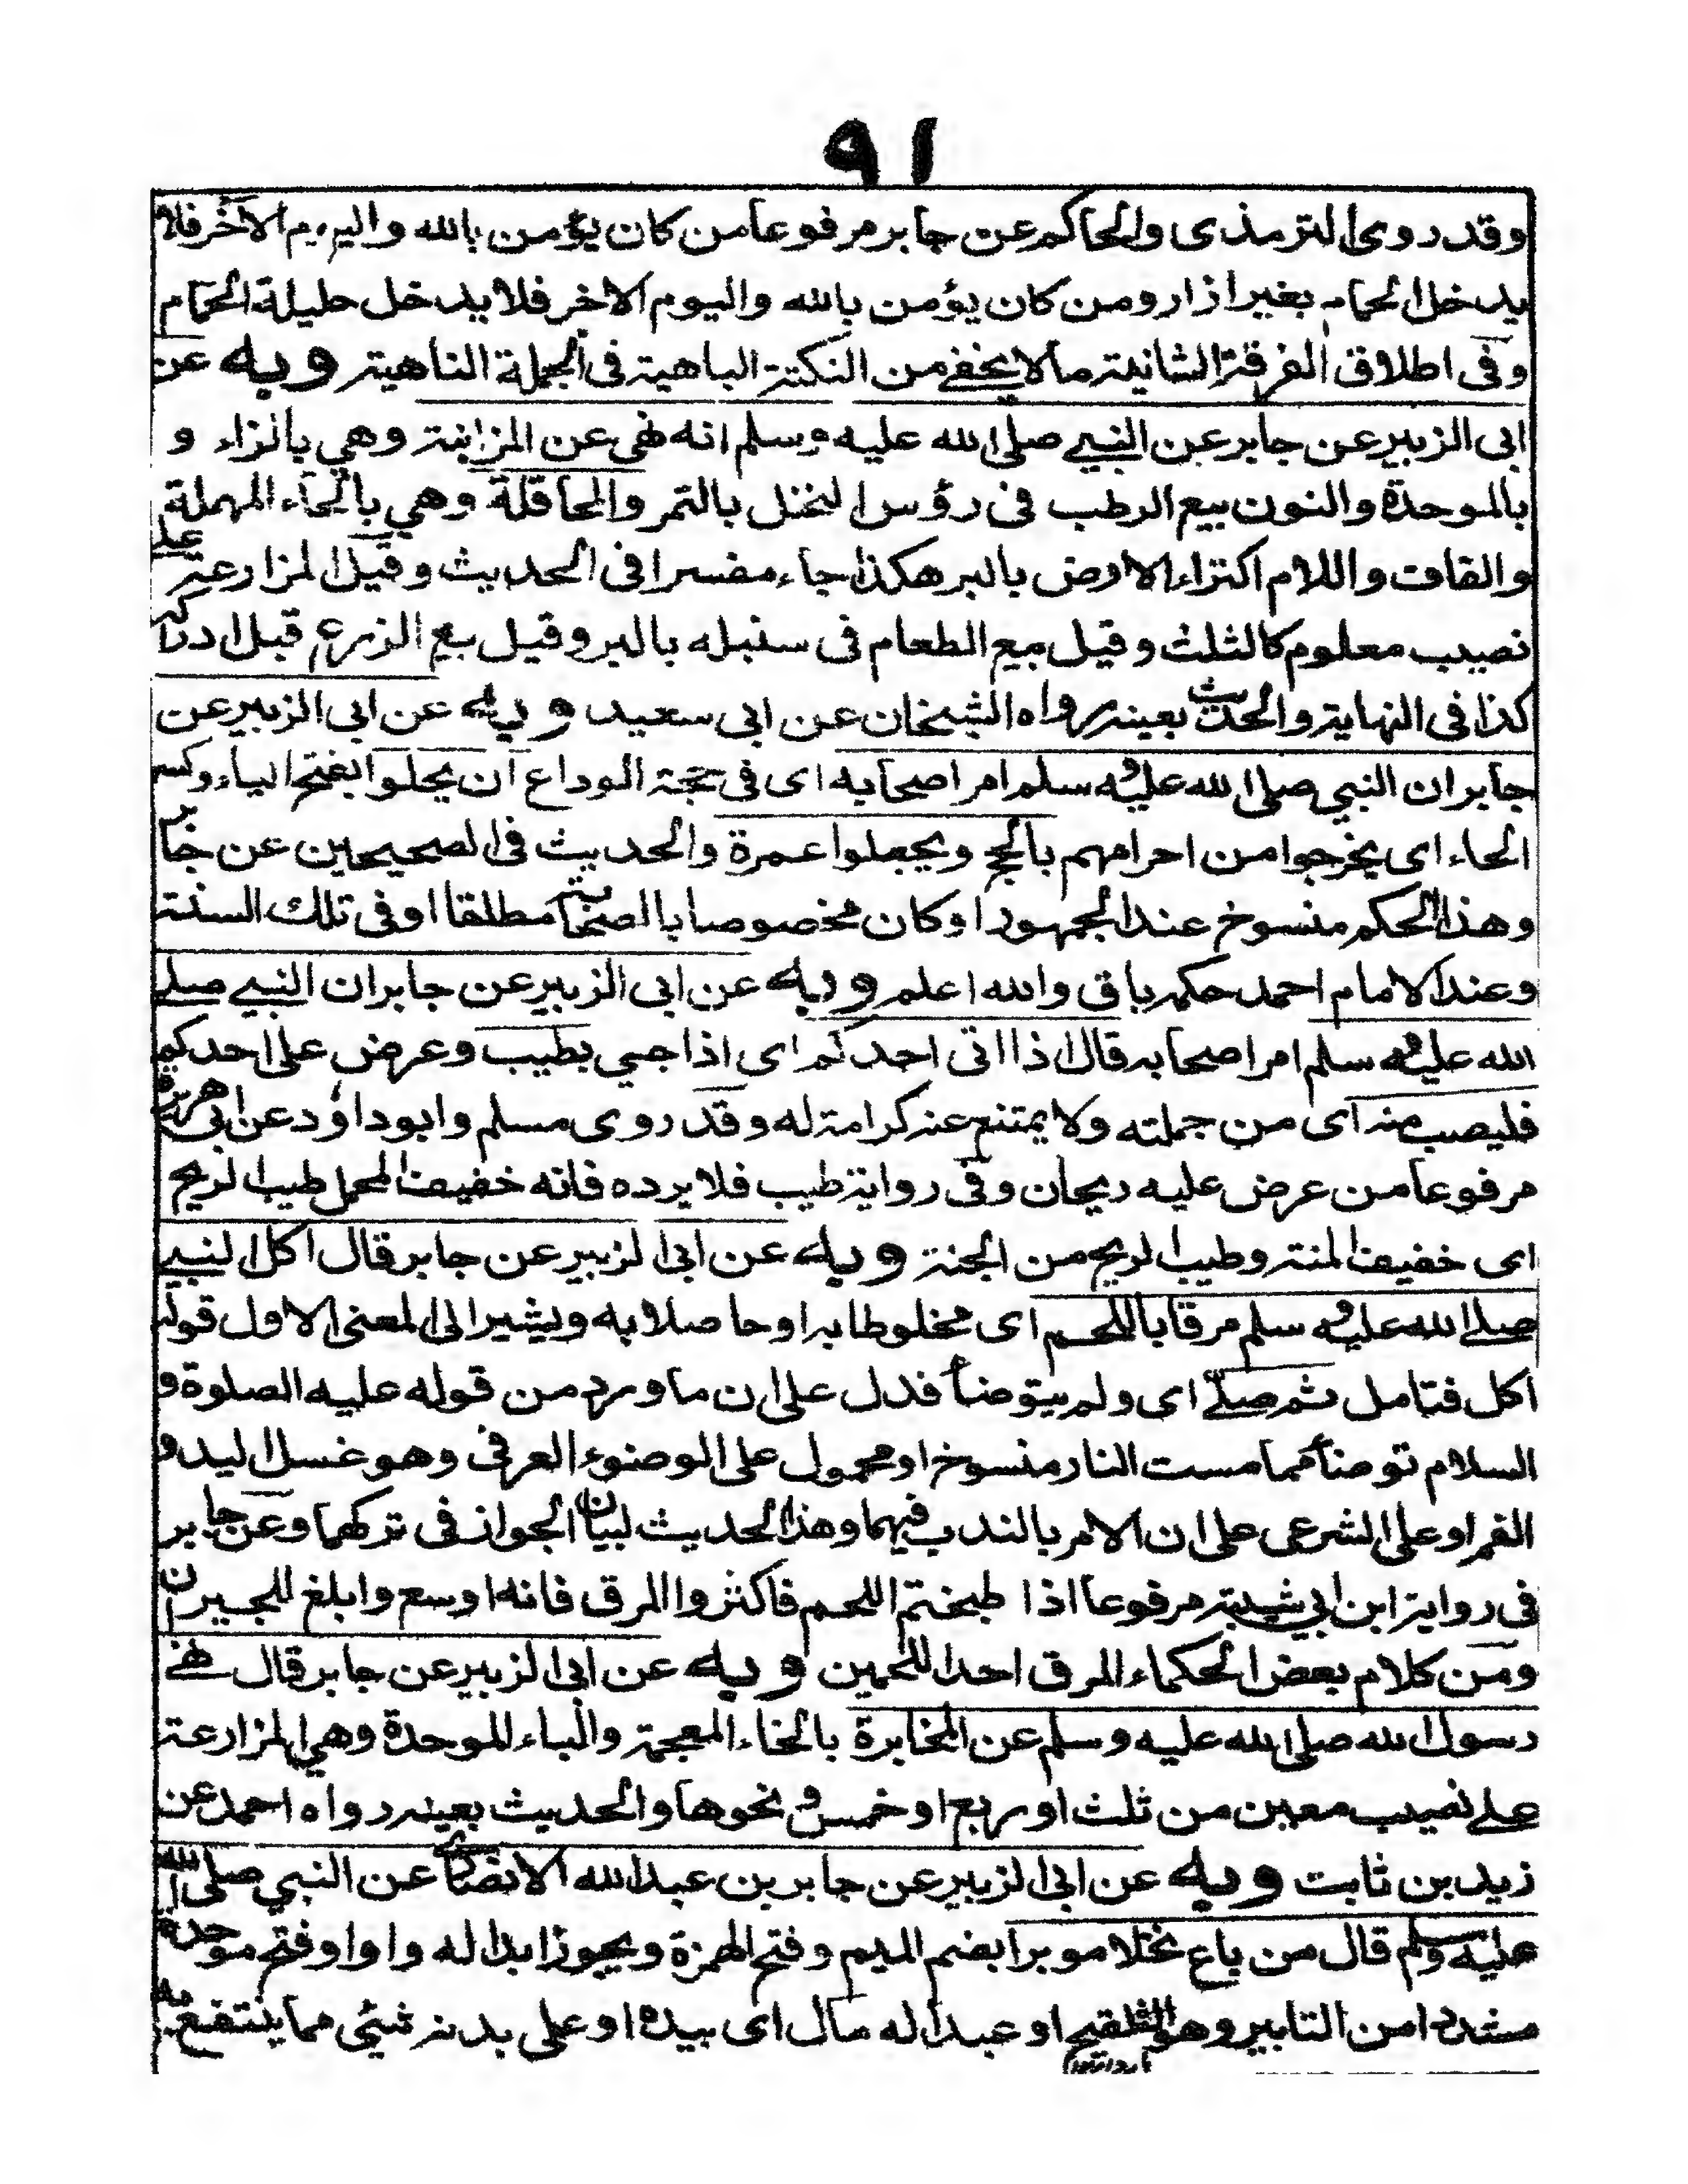 ٩١
وقد روى الترمذى والحاكم عن جابر مرفوعا من كان يؤمن بالله واليوم الآخر فلا
يدخل الحمام بغير ازار ومن كان يؤمن بالله واليوم الاخر فلا يدخل حليلة الحمام
وفى اطلاق الفرقة الثانية ما لا يخفے من النكتة الباهية فى الجملة الناهية وبه عن
ابى الزبير عن جابر عن النبے صلى الله عليه وسلم انه نهى عن المزابنة وهي بالزاء و
بالموحدة والنون بيع الرطب فى رؤس النخل بالتمر والمحاقلة وهي بالحاء المهملة
والقاف واللام اكتراء الارض بالبر هكذا جاء مفسرا فى الحديث وقيل المزارعة علے
نصيب معلوم كالثلث وقيل بيع الطعام فى سنبله بالبر وقيل بيع الزرع قبل ادراكه
كذا فى النهاية والحديث بعينه رواه الشيخان عن ابى سعيد وبه عن ابى الزبير عن
جابر ان النبي صلى الله عليه وسلم امر اصحابه اى فى حجة الوداع ان يحلوا بفتح الياء وكسر
الحاء اى يخرجوا من احرامهم بالحج ويجعلوا عمرة والحديث فى الصحيحين عن جابر
وهذا الحكم منسوخ عند الجمهور او كان مخصوصا بالصحابة مطلقا او فى تلك السنة
وعند الامام احمد حكمه باق والله اعلم وبه عن ابى الزبير عن جابر ان النبے صلے
الله عليه وسلم امر اصحابه قال اذا اتى احدكم اى اذا جيى بطيب وعرض على احدكم
فليصب منه اى من جملته ولا يمتنع عنه كرامة له وقد روى مسلم وابو داؤد عن ابى هريرة
مرفوعا من عرض عليه ريحان وفى رواية طيب فلا يرده فانه خفيف المحمل طيب الريح
اى خفيف المنة وطيب الريح من الجنة وبه عن ابى الزبير عن جابر قال اكل النبے
صلے الله عليه وسلم مرقا باللحم اى مخلوطا به او حاصلا به ويشير الى المعنى الاول قوله
اكل فتامل ثم صلے اى ولم يتوضأ فدل على ان ما ورد من قوله عليه الصلوة و
السلام توضأ مما مست النار منسوخ او محمول على الوضوء العرفى وهو غسل اليد و
الفم او على الشرعى على ان الامر بالندب فيهما وهذا الحديث لبيان الجواز فى تركهما وعن جابر
فى رواية ابن ابي شيبة مرفوعا اذا طبختم اللحم فاكثروا المرق فانه اوسع وابلغ للجيران
ومن كلام بعض الحكماء المرق احد اللحمين وبه عن ابى الزبير عن جابر قال نهے
رسول الله صلى الله عليه وسلم عن المخابرة بالخاء المعجمة والباء الموحدة وهي المزارعة
علے نصيب معين من ثلث او ربع او خمس و نحوها والحديث بعينه رواه احمد عن
زيد بن ثابت وبه عن ابى الزبير عن جابر بن عبد الله الانصارى عن النبي صلى الله
عليه وسلم قال من باع نخلا موبرا بضم الميم وفتح الهمزة ويجوز ابداله واوا وفتح موحدة
مشددا من التابير وهو التلقيح او عبدا له مال اى بيده او على بدنه شئى مما ينتفع به